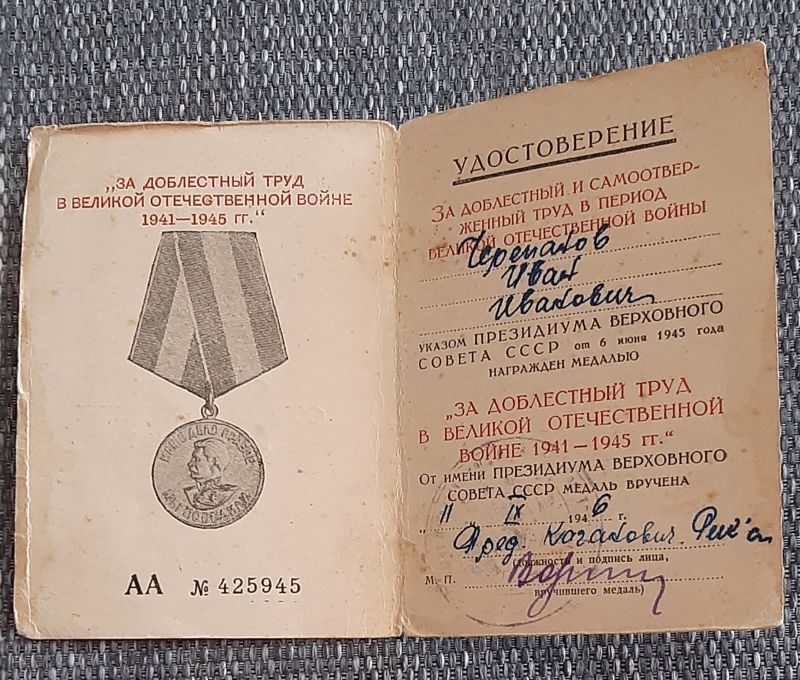 „ЗА ДОБЛЕСТНЫЙ ТРУД
В ВЕЛИКОЙ ОТЕЧЕСТВЕННОЙ ВОЙНЕ
1941—1945 гг.“
НАШЕ ДЕЛО ПРАВОЕ
АА № 425945
УДОСТОВЕРЕНИЕ
ЗА ДОБЛЕСТНЫЙ И САМООТВЕР-
ЖЕННЫЙ ТРУД В ПЕРИОД
ВЕЛИКОЙ ОТЕЧЕСТВЕННОЙ ВОЙНЫ
Черепахов
Иван
Иванович
УКАЗОМ ПРЕЗИДИУМА ВЕРХОВНОГО
СОВЕТА СССР от 6 июня 1945 года
НАГРАЖДЕН МЕДАЛЬЮ
„ЗА ДОБЛЕСТНЫЙ ТРУД
В ВЕЛИКОЙ ОТЕЧЕСТВЕННОЙ
ВОЙНЕ 1941—1945 гг.“
От имени ПРЕЗИДИУМА ВЕРХОВНОГО
СОВЕТА СССР МЕДАЛЬ ВРУЧЕНА
„ 11 IX 1946 г.
Пред.
(должность и подпись лица,
М. П.
вручившего медаль)